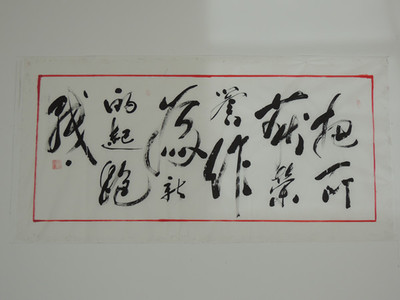 把所
获荣
誉作
為新
的起跑
线